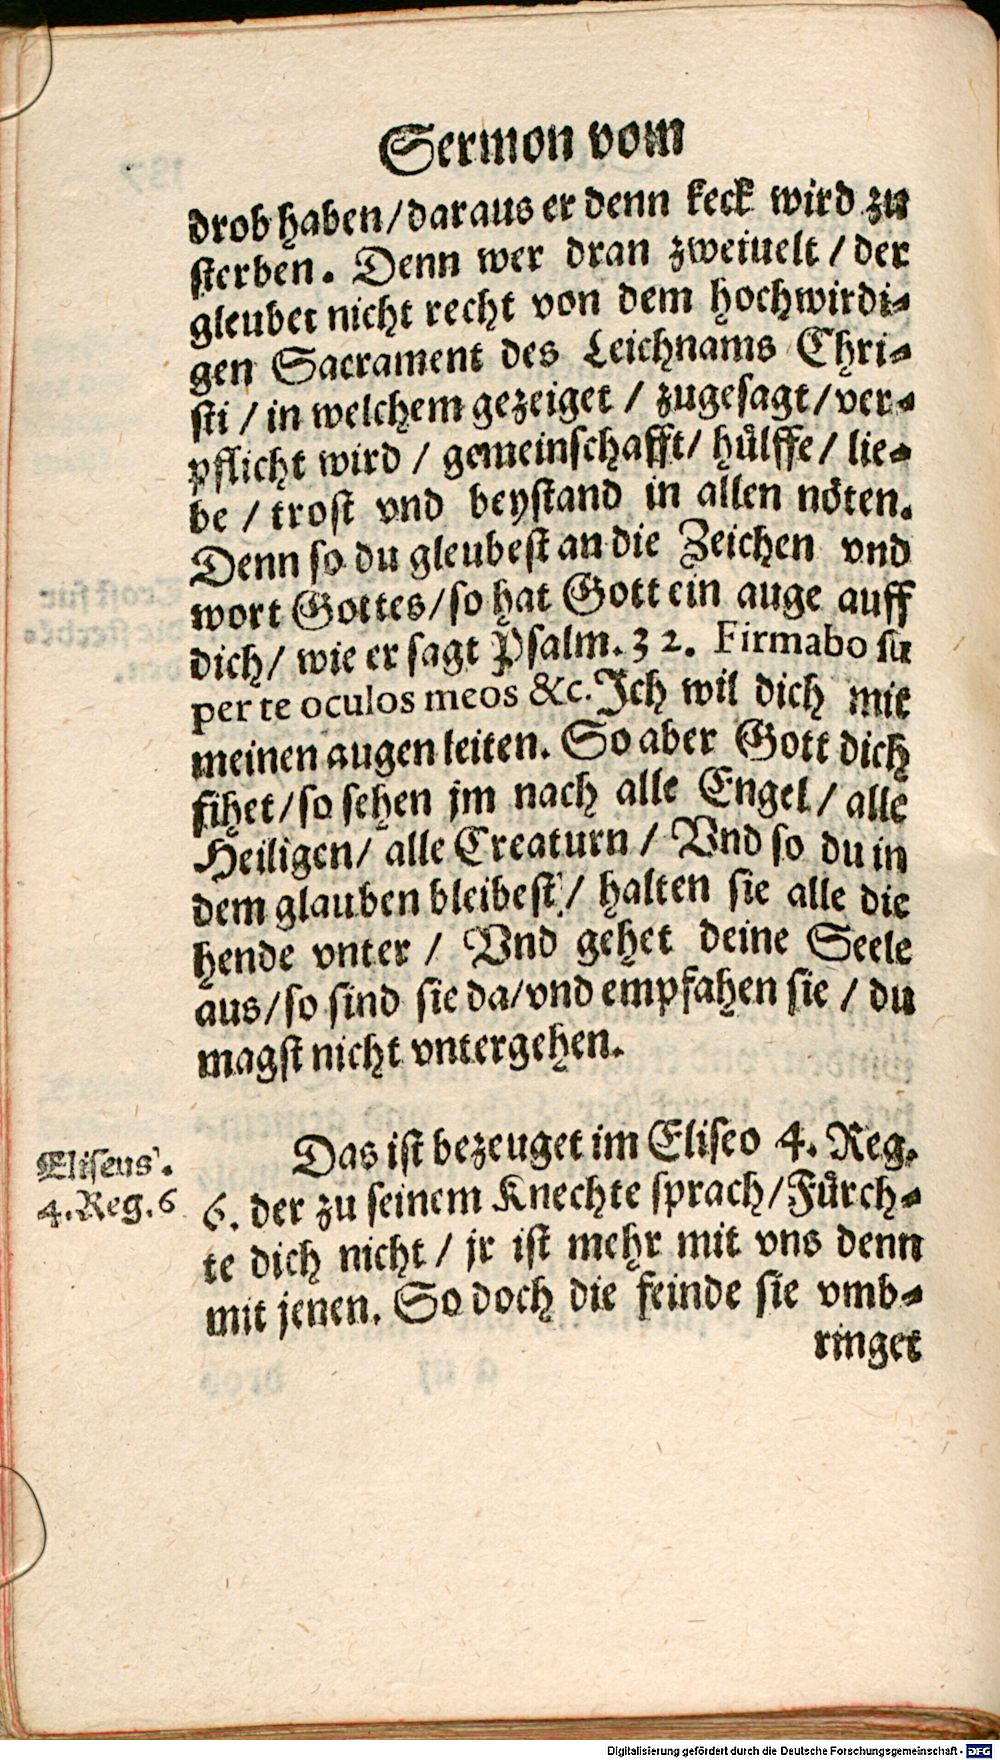 Sermon vom
drob haben/daraus er denn keck wird zu
sterben. Denn wer dran zweiuelt / der
gleubet nicht recht von dem hochwirdi-
gen Sacrament des Leichnams Chri-
sti / in welchem gezeiget / zugesagt/ver-
pflicht wird / gemeinschafft/ hülffe/ lie-
be / trost vnd beystand in allen nöten.
Denn so du gleubest an die Zeichen vnd
wort Gottes/so hat Gott ein auge auff
dich/ wie er sagt Psalm. 32. Firmabo su
per te oculos meos &c. Ich wil dich mit
meinen augen leiten. So aber Gott dich
sihet/so sehen jm nach alle Engel/ alle
Heiligen/ alle Creaturn / Vnd so du in
dem glauben bleibest / halten sie alle die
hende vnter / Vnd gehet deine Seele
aus/so sind sie da/vnd empfahen sie / du
magst nicht vntergehen.
Das ist bezeuget im Eliseo 4. Reg.
Eliseus.
4. Reg. 6
6. der zu seinem Knechte sprach/Fürch-
te dich nicht/ jr ist mehr mit vns denn
mit jenen. So doch die feinde sie vmb-
ringet
Digitalisierung gefördert durch die Deutsche Forschungsgemeinschaft - DFG